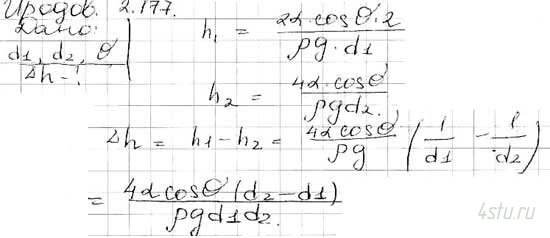 Иродов. 2.177.
Дано:
d1, d2, θ
Δh - ?
h₁ = 2α·cosθ·2 / ρg·d1
h₂ = 4α·cosθ / ρgd2.
Δh = h1 - h2 = 4αcosθ / ρg (1/d1 - 1/d2)
= 4αcosθ(d2-d1) / ρgd1d2.
4stu.ru